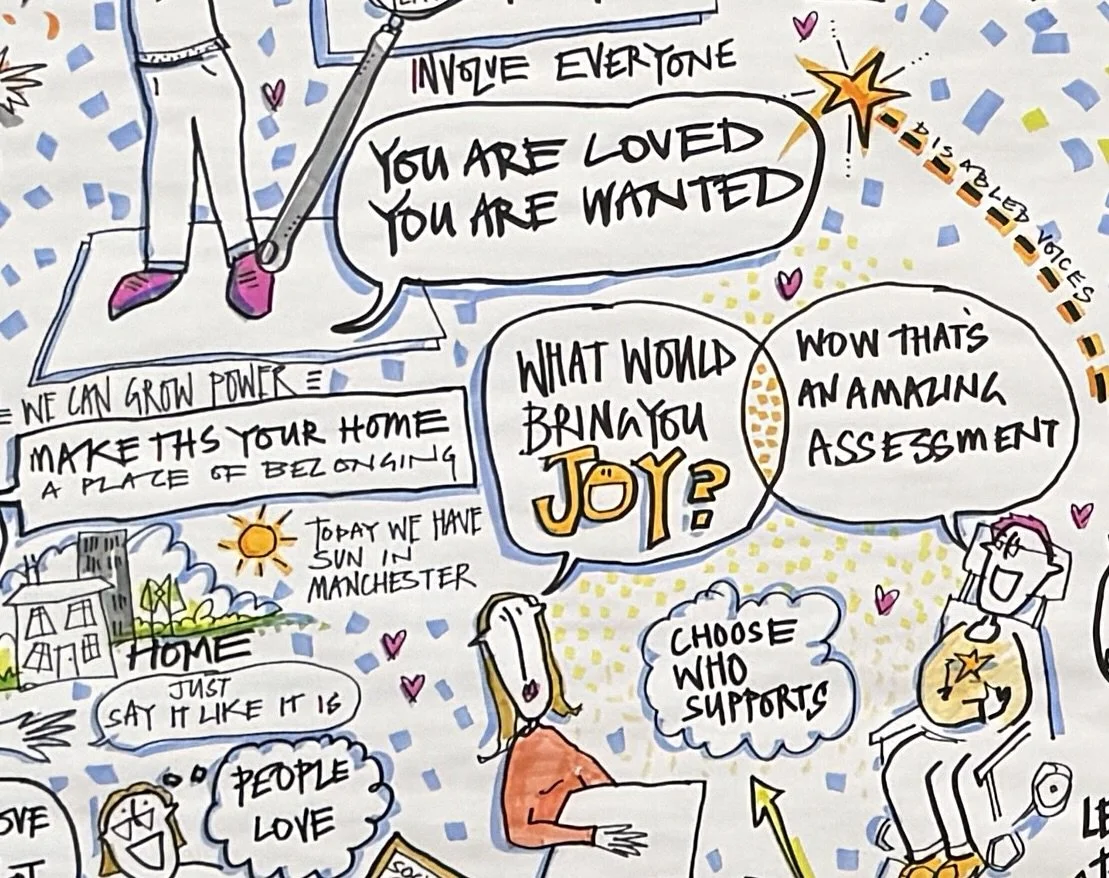 INVOLVE EVERYONE
YOU ARE LOVED
YOU ARE WANTED
DISABLED VOICES
WHAT WOULD
BRING YOU
JOY?
WOW THAT'S
AN AMAZING
ASSESSMENT
WE CAN GROW POWER
MAKE THS YOUR HOME
A PLACE OF BELONGING
TODAY WE HAVE
SUN IN
MANCHESTER
HOME
JUST
SAY IT LIKE IT IS
CHOOSE
WHO
SUPPORTS
PEOPLE
LOVE